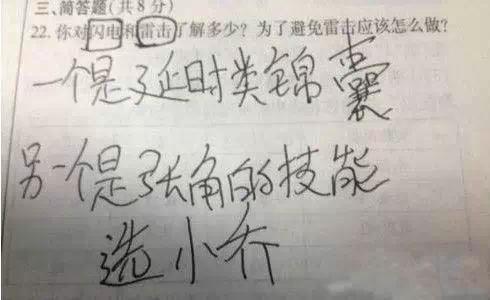 三、简答题(共8分)
22. 你对闪电和雷击了解多少？为了避免雷击应该怎么做？
一个是延时类锦囊
另一个是张角的技能
选小乔